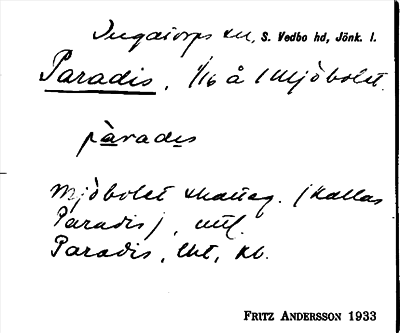 Ingatorps sn, S. Vedbo hd, Jönk. l.
Paradis, 1/16 å 1 Mjöbolet.
pàradis
Mjöbolet skatteg. (kallas
Paradis), utl.
Paradis, lht, kb.
FRITZ ANDERSSON 1933